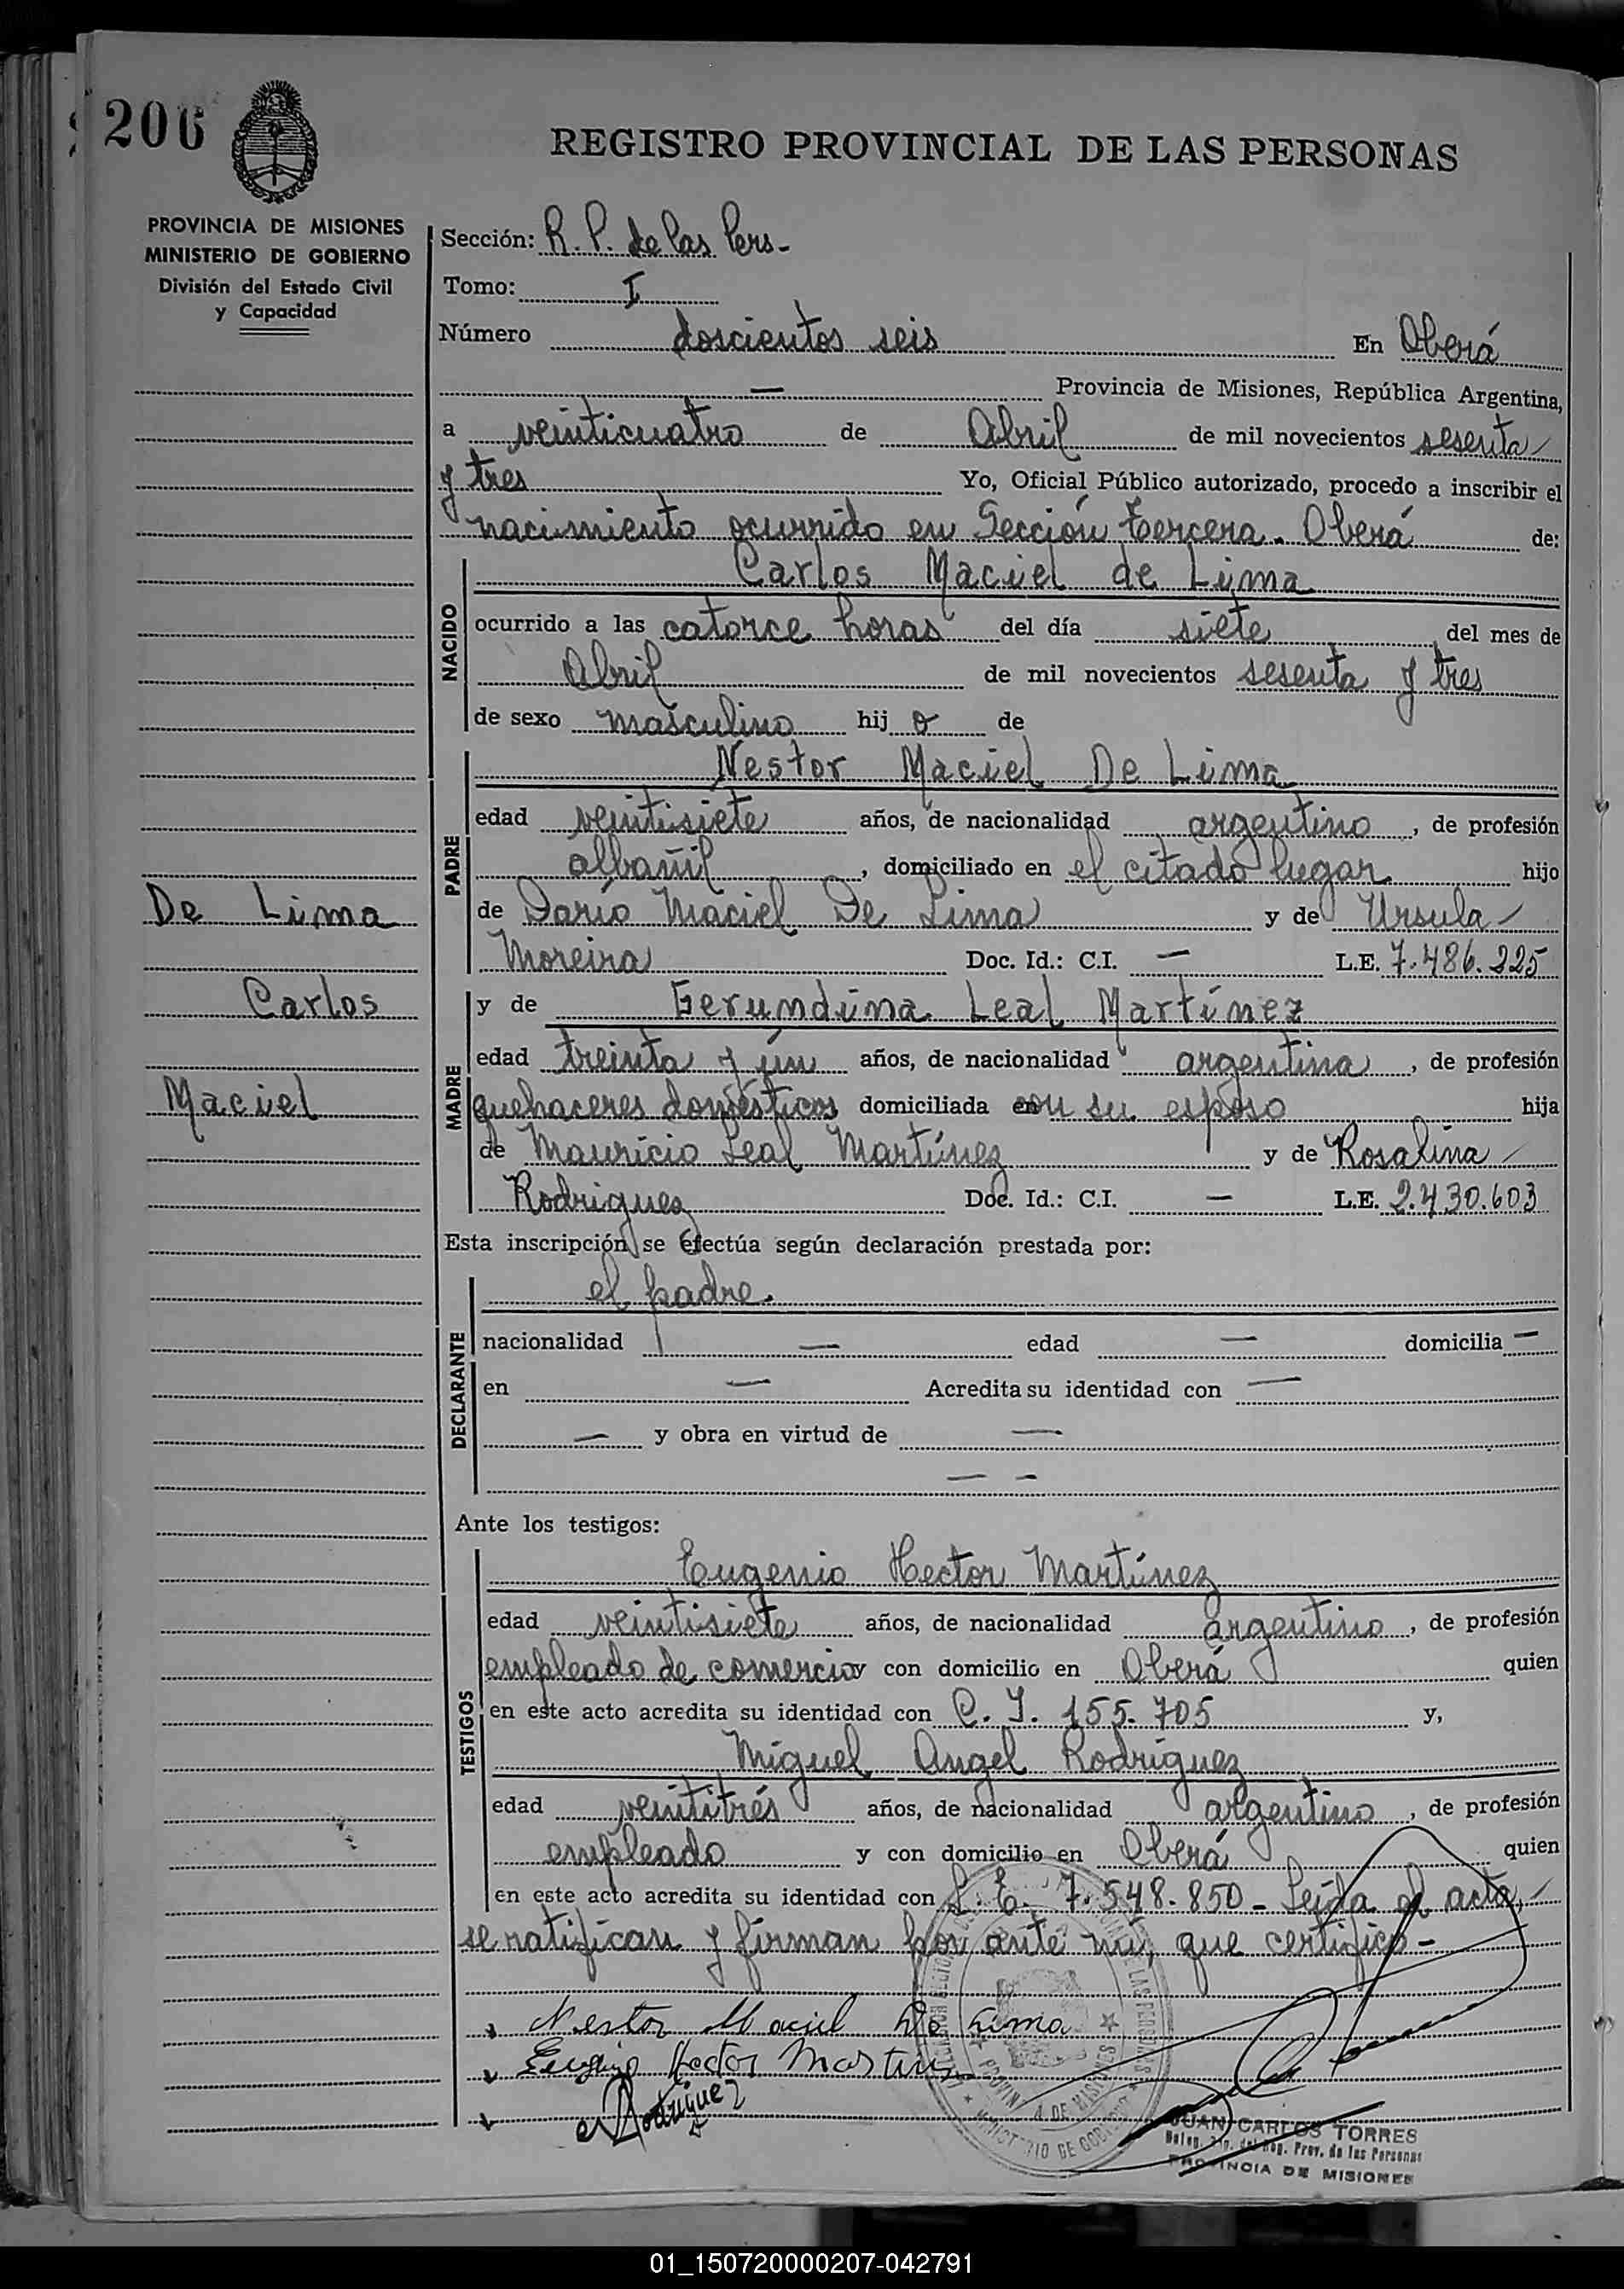 206
REGISTRO PROVINCIAL DE LAS PERSONAS
PROVINCIA DE MISIONES
MINISTERIO DE GOBIERNO
División del Estado Civil
y Capacidad
Sección: R. P. de las Pers-
Tomo: I
Número doscientos seis En Oberá
— Provincia de Misiones, República Argentina,
a veinticuatro de Abril de mil novecientos sesenta
y tres Yo, Oficial Público autorizado, procedo a inscribir el
nacimiento ocurrido en Sección Tercera. Oberá de:
NACIDO
Carlos Maciel de Lima
ocurrido a las catorce horas del día siete del mes de
Abril de mil novecientos sesenta y tres
de sexo masculino hijo de
PADRE
Nestor Maciel De Lima
edad veintisiete años, de nacionalidad argentino, de profesión
albañil, domiciliado en el citado lugar hijo
de Darío Maciel De Lima y de Ursula
Moreira Doc. Id.: C.I. — L.E. 7.486.225
De Lima
Carlos
Maciel
MADRE
y de Gerundina Leal Martínez
edad treinta y ún años, de nacionalidad argentina, de profesión
quehaceres domésticos domiciliada con su esposo hija
de Mauricio Leal Martínez y de Rosalina
Rodriguez Doc. Id.: C.I. — L.E. 2.430.603
Esta inscripción se efectúa según declaración prestada por:
DECLARANTE
el padre.
nacionalidad — edad — domicilia —
en — Acredita su identidad con —
— y obra en virtud de —
— -
Ante los testigos:
TESTIGOS
Eugenio Hector Martínez
edad veintisiete años, de nacionalidad argentino, de profesión
empleado de comercio y con domicilio en Oberá quien
en este acto acredita su identidad con C. I. 155.705 y,
Miguel Angel Rodriguez
edad veintitrés años, de nacionalidad argentino, de profesión
empleado y con domicilio en Oberá quien
en este acto acredita su identidad con L. E. 7.548.850 - Leída el acta,
se ratifican y firman por ante mí, que certifico -
Nestor Maciel De Lima
Eugenio Hector Martinez
Rodriguez
PROVINCIA DE MISIONES
MINISTERIO DE GOBIERNO
JUAN CARLOS TORRES
Reg. Prov. de las Personas
PROVINCIA DE MISIONES
01_150720000207-042791